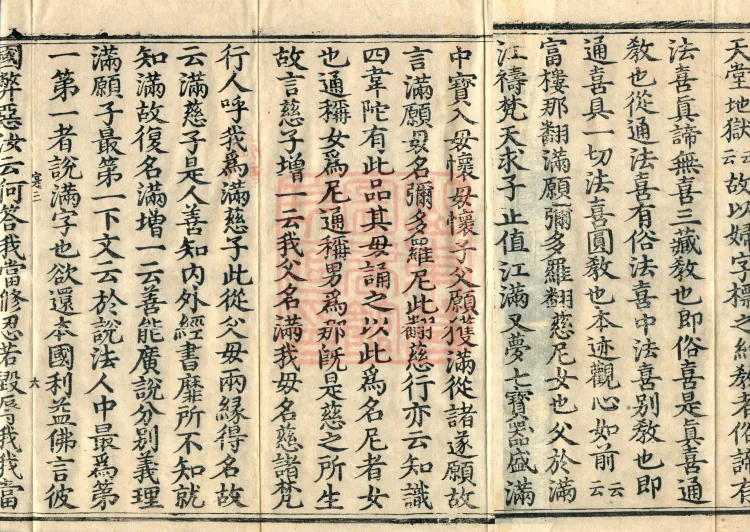 天堂地獄云云故以婦字標之約教者作諦有
法喜眞諦無喜三藏教也即俗喜是眞喜通
教也從通法喜有俗法喜中法喜別教也即
通喜具一切法喜圓教也本迹觀心如前云云
富樓那翻滿願彌多羅翻慈尼女也父於滿
江禱梵天求子止值江滿又夢七寶器盛滿
中寶入母懷母懷子父願獲滿從諸遂願故
言滿願母名彌多羅尼此翻慈行亦云知識
四韋陀有此品其母誦之以此爲名尼者女
也通稱女爲尼通稱男爲那旣是慈之所生
故言慈子增一云我父名滿我母名慈諸梵
行人呼我爲滿慈子此從父母兩緣得名故
云滿慈子是人善知內外經書靡所不知就
知滿故復名滿增一云善能廣說分別義理
滿願子最第一下文云於說法人中最爲第
一第一者說滿字也欲還本國利益佛言彼
六
國弊惡汝云何答我當修忍若毀辱我我當